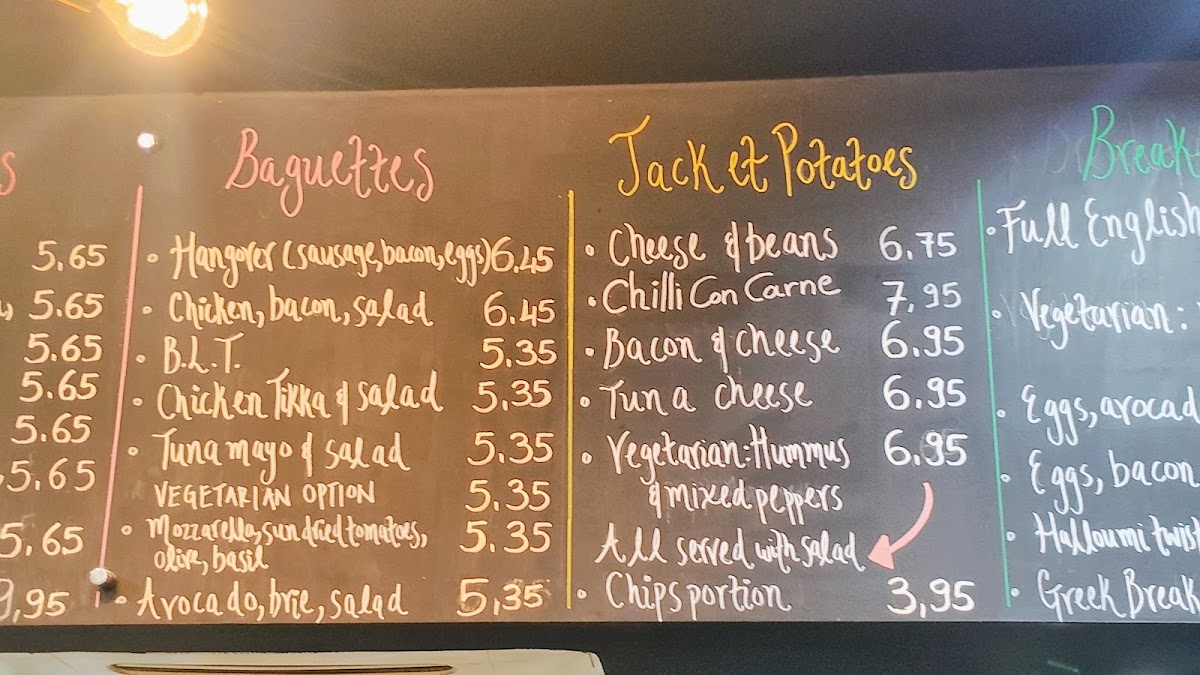 s
5.65
, 5.65
5.65
5.65
5.65
5.65
5.65
9,95
Baguettes
Hangover (sausage, bacon, eggs) 6.45
Chicken, bacon, salad 6.45
B.L.T. 5.35
Chicken Tikka & salad 5.35
Tuna mayo & salad 5.35
VEGETARIAN OPTION 5.35
Mozzarella, sundried tomatoes, 5.35
olive, basil
Avocado, brie, salad 5,35
Jacket Potatoes
Cheese & beans 6.75
Chilli Con Carne 7,95
Bacon & cheese 6.95
Tuna cheese 6.95
Vegetarian: Hummus 6.95
& mixed peppers
All served with salad
Chips portion 3,95
Break
Full English
Vegetarian:
Eggs, avocad
Eggs, bacon
Halloumi twist
Greek Break